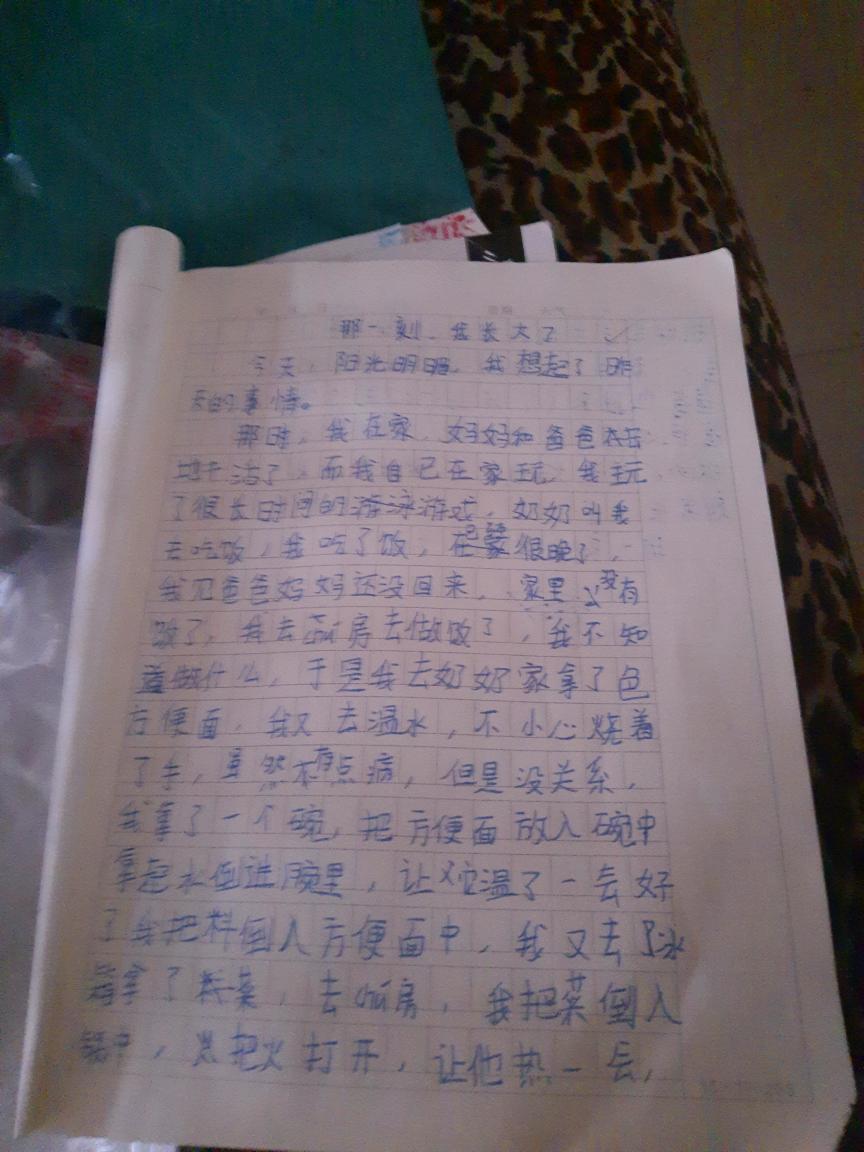 那一刻，我长大了
今天，阳光明眲，我想起了昨
天的事情。
那时，我在家，妈妈和爸爸去
地干活了，而我自己在家玩，我玩
了很长时间的游泳游戏，奶奶叫我
去吃饭，我吃了饭，已经很晚了，
我见爸爸妈妈还没回来，家里没有
饭了，我去厨房去做饭了，我不知
道做什么，于是我去奶奶家拿了包
方便面，我又去温水，不小心烧着
了手，虽然有点痛，但是没关系，
我拿了一个碗，把方便面放入碗中
拿起水倒进腕里，让它温了一会好
了我把料倒入方便面中，我又去了冰
箱拿了菜，去厨房，我把菜倒入
锅中，把火打开，让他热一会，